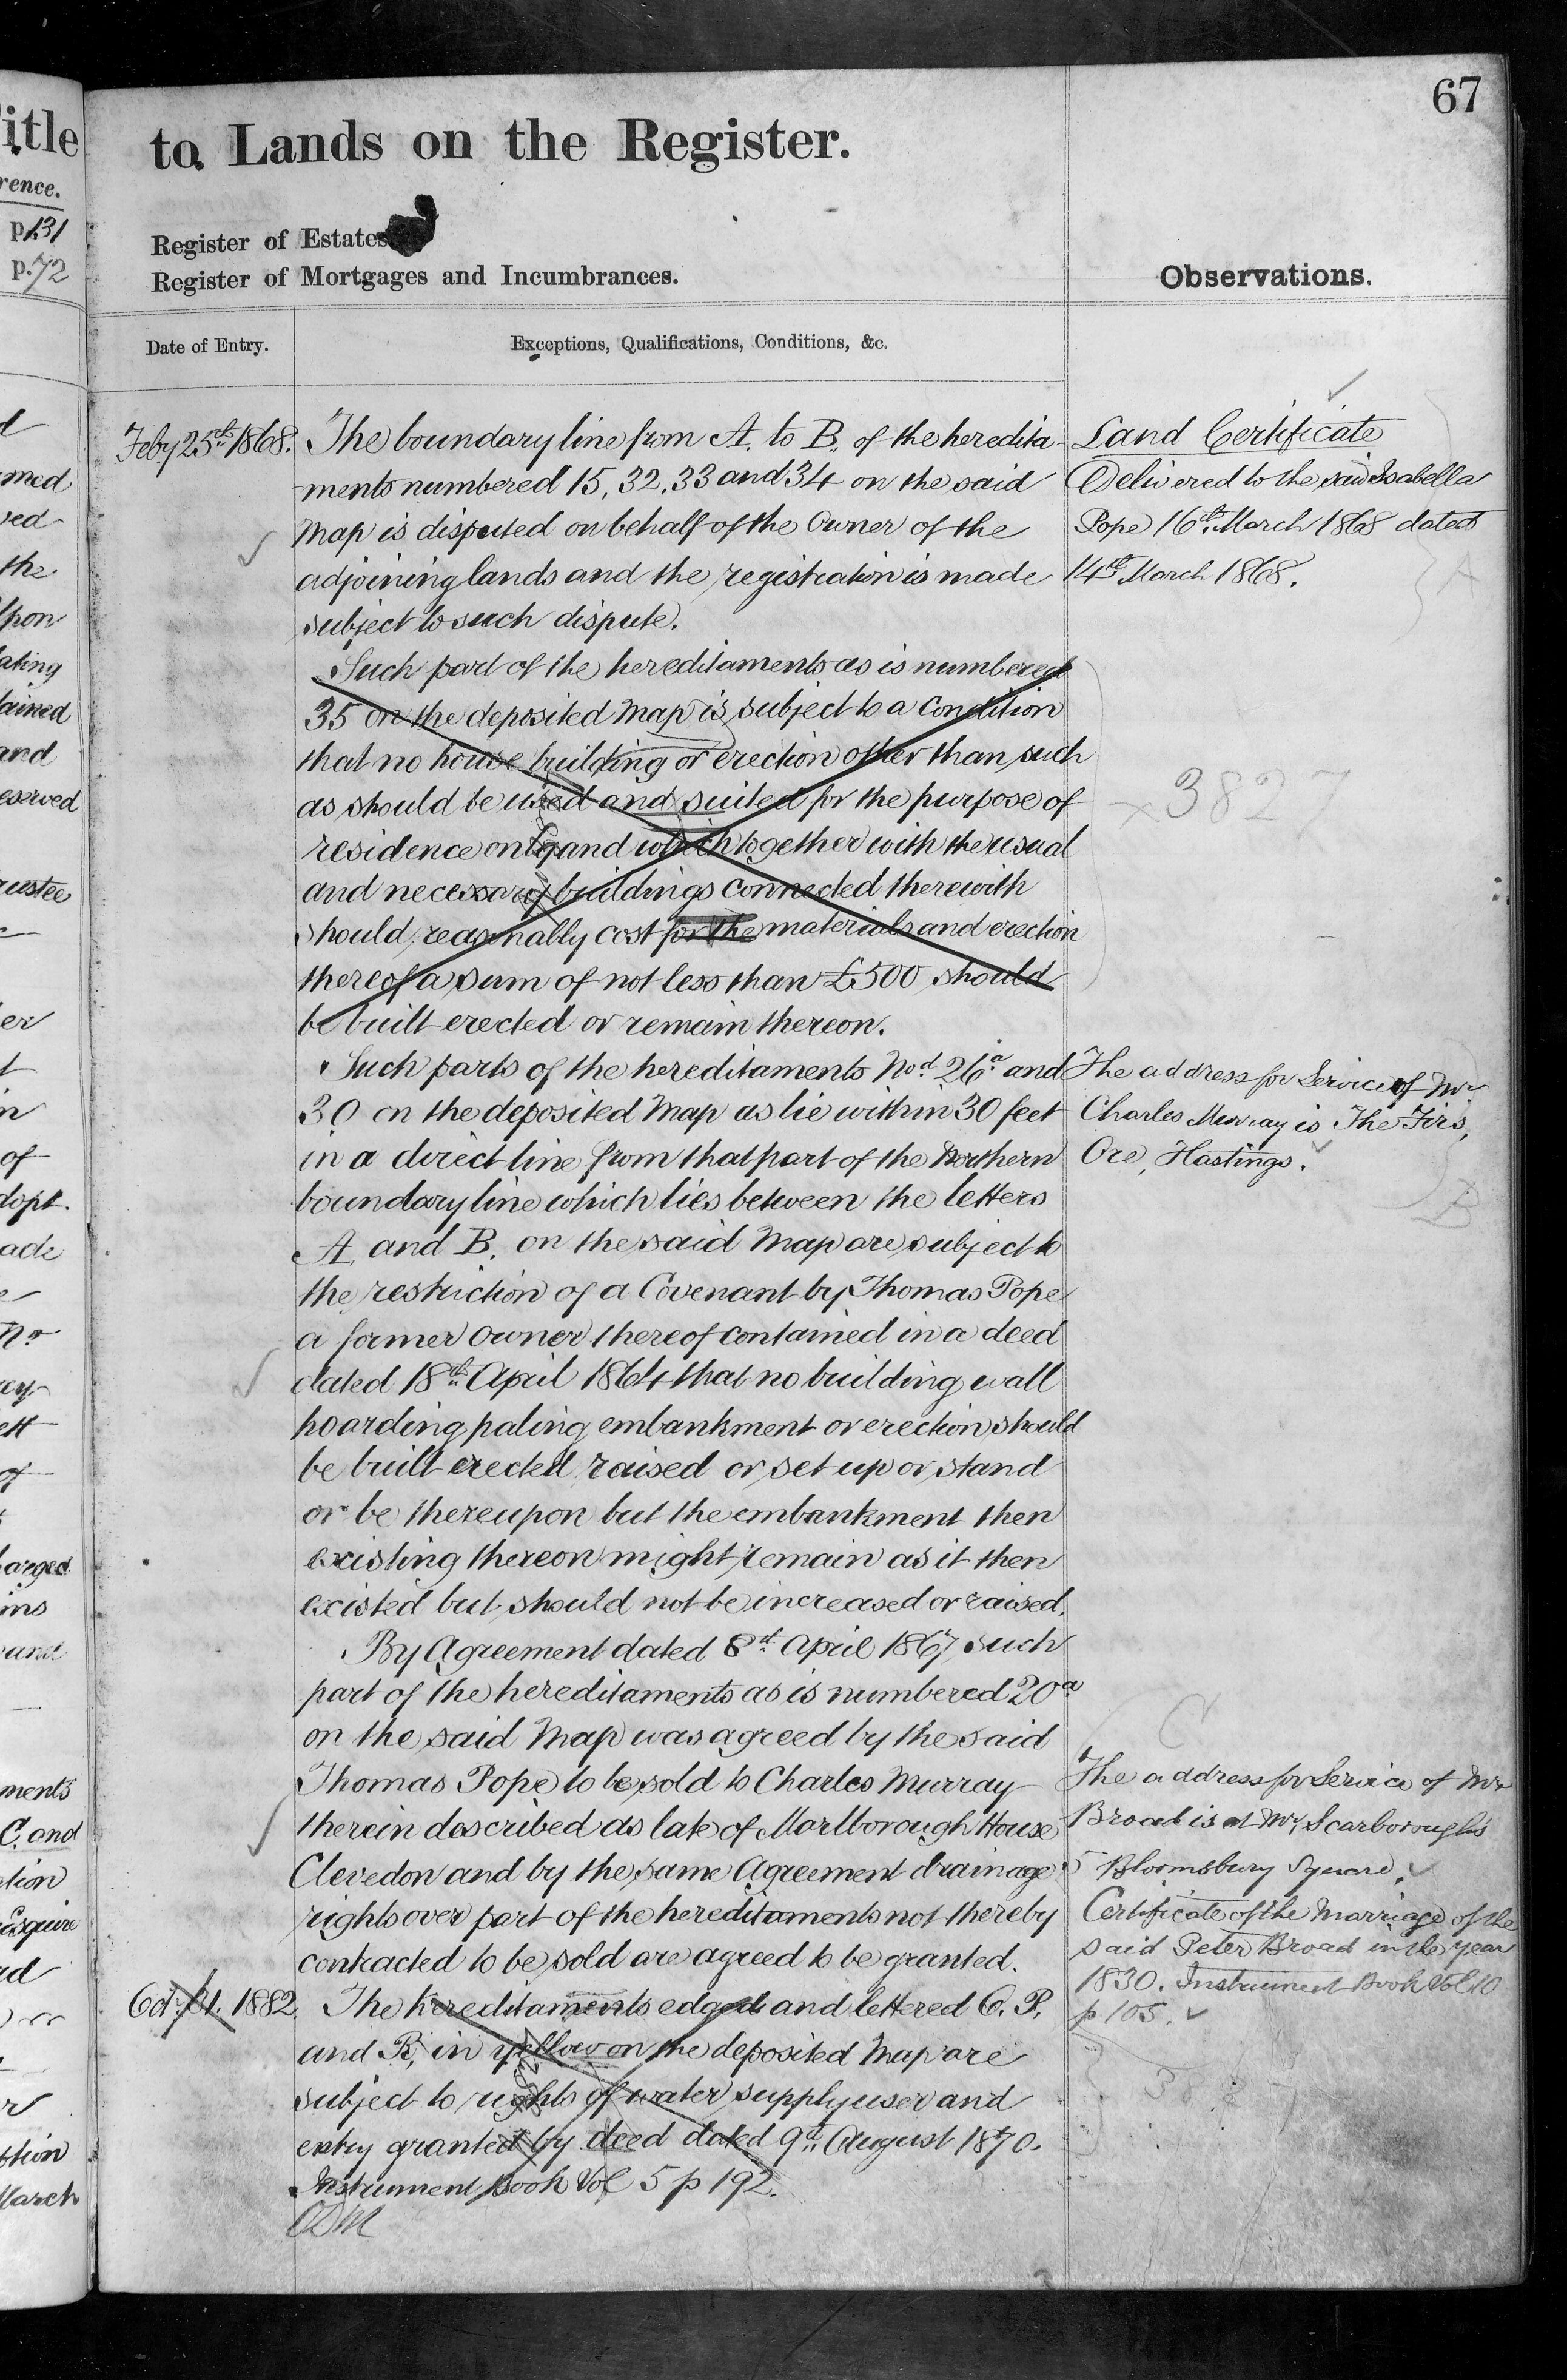 67
to Lands on the Register.
Register of Estates
Register of Mortgages and Incumbrances.
Observations.
Date of Entry.
Exceptions, Qualifications, Conditions, &c.
Feby 25th 1868.
The boundary line from A. to B. of the heredita-
ments numbered 15, 32, 33 and 34 on the said
Map is disputed on behalf of the Owner of the
adjoining lands and the registration is made
subject to such dispute.
Such part of the hereditaments as is numbered
35 on the deposited Map is subject to a condition
that no house building or erection other than such
as should be used and suited for the purpose of
residence only and which together with the usual
and necessary buildings connected therewith
should reasonably cost for the materials and erection
thereof a sum of not less than £500 should
be built erected or remain thereon.
Such parts of the hereditaments Nod 26a and
30 on the deposited Map as lie within 30 feet
in a direct line from that part of the Northern
boundary line which lies between the letters
A and B. on the said Map are subject to
the restriction of a Covenant by Thomas Pope
a former owner thereof contained in a deed
dated 18th April 1864 that no building wall
hoarding paling embankment or erection should
be built erected raised or set up or stand
or be thereupon but the embankment then
existing thereon might remain as it then
existed but should not be increased or raised.
By Agreement dated 8th April 1867 such
part of the hereditaments as is numbered 20a
on the said Map was agreed by the said
Thomas Pope to be sold to Charles Murray
therein described as late of Marlborough House
Clevedon and by the same Agreement drainage
rights over part of the hereditaments not thereby
contracted to be sold are agreed to be granted.
Oct. 31. 1882.
The hereditaments edged and lettered O. P.
and R, in yellow on the deposited Map are
subject to rights of water supply user and
entry granted by deed dated 9th August 1870.
Instrument Book Vol 5 p 192.
Land Certificate
Delivered to the said Isabella
Pope 16th March 1868 dated
14th March 1868.
A
3827
The address for Service of Mr
Charles Murray is The Firs,
Ore, Hastings.
B
C
The address for Service of Mr
Broad is at Mr Scarborough's
5 Bloomsbury Square.
Certificate of the Marriage of the
said Peter Broad in the year
1830. Instrument Book Vol 10
p 105.
itle
rence.
p.131
p.72